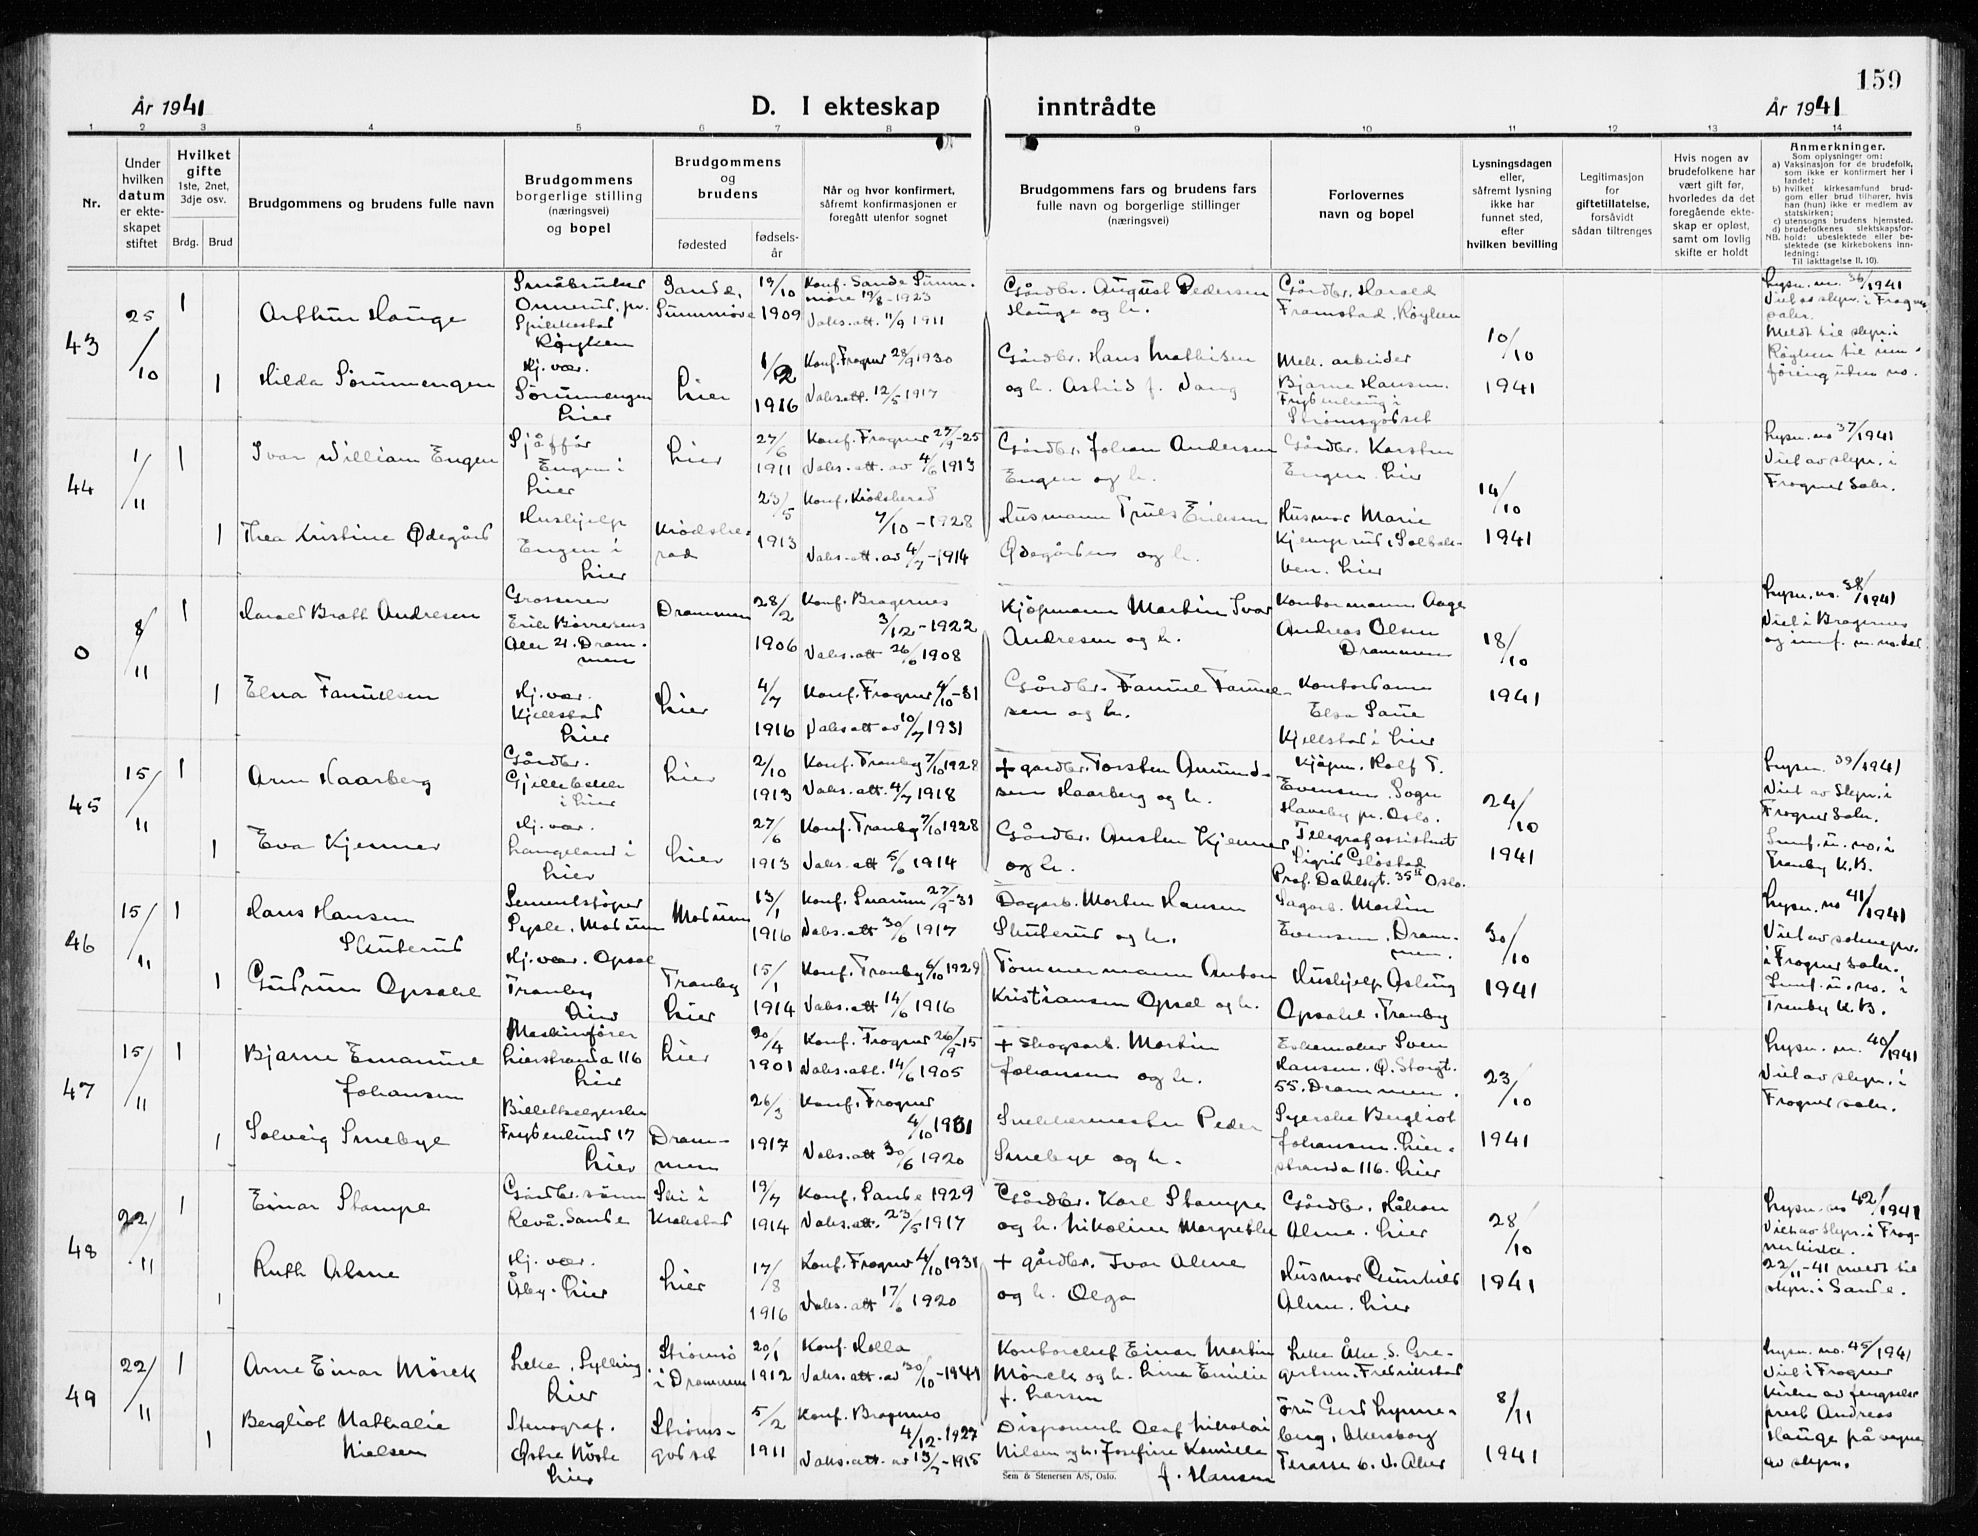 159
År 1941
D. I ekteskap inntrådte
År 1941
1 2 3 4 5 6 7 8 9 10 11 12 13 14
Nr.
Under hvilken datum er ekteskapet stiftet
Hvilket gifte
1ste, 2net, 3dje osv.
Brdg. Brud
Brudgommens og brudens fulle navn
Brudgommens borgerlige stilling (næringsvei) og bopel
Brudgommens og brudens
fødested
fødselsår
Når og hvor konfirmert, såfremt konfirmasjonen er foregått utenfor sognet
Brudgommens fars og brudens fars fulle navn og borgerlige stillinger (næringsvei)
Forlovernes navn og bopel
Lysningsdagen eller, såfremt lysning ikke har funnet sted, efter hvilken bevilling
Legitimasjon for giftetillatelse, forsåvidt sådan tiltrenges
Hvis nogen av brudefolkene har vært gift før, hvorledes da det foregående ekteskap er opløst, samt om lovlig skifte er holdt
Anmerkninger.
Som oplysninger om:
a) Vaksinasjon for de brudefolk, som ikke er konfirmert her i landet;
b) hvilket kirkesamfund brudgom eller brud tilhører, hvis han (hun) ikke er medlem av statskirken;
c) utensogns brudens hjemsted.
d) brudefolkenes slektskapsforhold: ubeslektede eller beslektede (se kirkebokens innledning:
NB.
Til iakttagelse II. 10).
43
25/10
1
Arthur Hauge
Småbruker
Spikkestad
Røyken
Sande,
Sunnmøre
19/10
1909
Konf. Sande Sunnmøre 19/8-1923
Vaks. att. 11/9 1911
Gårdbr. August Pedersen
Hauge og h.
Gårdbr. Harald
Framstad, Røyken
10/10
1941
Lysn. nr. 36/1941
Viet av slspr. i Frogner
Meldt til slspr. i
Røyken til inn-
føring uten no.
1
Hilda Sørumengen
Hj. vær.
Sørumengen
Lier
Lier
1/2
1916
Konf. Frogner 28/9 1930
Vaks. att. 12/5 1917
Gårdbr. Hans Mathisen
og h. Astrid f. Vang
Mek. arbeider
Bjarne Hansen.
Frydenhaug i
Strømsgodset
44
1/11
1
Ivar William Engen
Sjåffør
Engen i
Lier
Lier
27/6
1911
Konf. Frogner 27/9-25
Vaks. att. av 4/6 1913
Gårdbr. Johan Andersen
Engen og h.
Gårdbr. Karsten
Engen. Lier
14/10
1941
Lysn. no 37/1941
Viet av slspr. i
Frogner sakr.
1
Thea Kristine Ødegård
Hushjelp
Engen i
Lier
Krødshe-
rad
23/5
1913
Konf. Krødsherad
7/10-1928
Vaks. att. av 4/7-1914
Husmann Truls Eriksen
Ødegården og h.
Husmor Marie
Kjemprud, Solbak-
ken. Lier
0
8/11
1
Harald Brath Andresen
Grosserer
Erik Børresens
Alle 21. Dram-
men
Drammen
28/2
1906
Konf. Bragernes
3/12-1922
Vaks. att 26/6 1908
Kjøpmann Martin Ivar
Andresen og h.
Kontormann Aage
Andreas Olsen
Drammen
18/10
1941
Lysn. no. 38/1941
Viet i Bragernes
og innf. u. no. der
1
Elna Fanuelsen
Hj. vær.
Kjellstad
Lier
Lier
4/7
1916
Konf. Frogner 4/10-31
Vaks att av 10/7 1931
Gårdbr. Fanuel Fanuel-
sen og h.
Kontordame
Elsa Saue
Kjellstad i Lier
45
15/11
1
Arne Haarberg
Gårdbr.
Gjellebekk
i Lier
Lier
2/10
1913
Konf. Tranby 7/10 1928
Vaks. att. 4/7 1918
+ gårdbr. Torsten Amund-
sen Haarberg og h.
Kjøpm. Rolf T.
Evensen. Sogn
Haveby pr. Oslo.
24/10
1941
Lysn. 39/1941
Viet av slspr. i
Frogner sakr.
Innf. u. no. i
Tranby K.B.
1
Eva Kjenner
Hj. vær.
Langeland i
Lier
Lier
27/6
1913
Konf. Tranby 7/10 1928
Vaks. att 5/6 1914
Gårdbr. Ansten Kjenner
og h.
Telegrafassistent
Sigrid Gløstad
Prof. Dahlsgt. 35 II Oslo.
46
15/11
1
Hans Hansen
Skuterud
Sementstøper
Sysle, Modum
Modum
13/1
1916
Konf. Snarum 27/9-31
Vaks. att 30/6 1917
Dagarb. Morten Hansen
Skuterud og h.
Sagarb. Martin
Evensen, Dram-
men.
30/10
1941
Lysn. no 41/1941
Viet av sokneprr.
i Frogner sakr.
Innf. u. no. i
Tranby K.B.
1
Gudrun Opsahl
Hj. vær. Opsal
Tranby
Lier
Tranby
Lier
15/1
1914
Konf. Tranby 6/10 1929
Vaks. att 14/6 1916
Tømmermann Anton
Kristiansen Opsal og h.
Hushjelp Aslaug
Opsahl. Tranby
47
15/11
1
Bjarne Emanuel
Johansen
Maskinfører
Lierstranda 116
Lier
Lier
20/4
1901
Konf. Frogner 26/9-15
Vaks. att. 14/6 1905
+ Skogsarb. Martin
Johansen og h.
Eskemaker Sven
Hansen. Ø. Storgt.
55. Drammen.
23/10
1941
Lysn. nr. 40/1941
Viet av slspr. i
Frogner sakr.
1
Solveig Smebye
Billettselgerske
Frydenlund 17
Lier
Dram-
men
26/3
1917
Konf. Frogner
4/10 1931
Vaks. att 30/6 1920
Snekkermester Peder
Smebye og h.
Syerske Bergliot
Johansen. Lier-
stranda 116. Lier
48
22/11
1
Einar Stampe
Gårdbr. sønn
Revå. Sande
Ski i
Kråkstad
19/7
1914
Konf. Sande 1929
Vaks. att. 23/5 1917
Gårdbr. Karl Stampe
og h. Nikoline Margrethe
Gårdbr. Håkon
Alme. Lier
28/10
1941
Lysn. no 42/1941
Viet av slspr. i Frog-
ner kirke.
22/11-41 meldt til
slspr. i Sande.
1
Ruth Alme
Hj. vær.
Åby. Lier
Lier
17/8
1916
Konf. Frogner 4/10 1931
Vaks. att 17/6 1920
+ gårdbr. Ivar Alme
og h. Olga
Husmor Gunhild
Alme. Lier
49
22/11
1
Arne Einar Mörck
Leke, Sylling
Lier
Strømsø
i Drammen
20/1
1912
Konf. Holla
Vaks. att. av 30/10-1941
Kontorchef Einar Martin
Mörck og h. Lina Emilie
f. Larsen
Leke Åke S. Gre-
gersen. Fredrikstad
8/11
1941
Lysn. no. 45/1941
Viet i Frogner
Kirke av fengsels-
prest Andreas
Hauge på vegne
av slspr.
1
Bergliot Nathalie
Nielsen
Stenograf.
Østre Nøste
Lier
Strøms-
godset
5/2
1911
Konf. Bragernes
4/12-1927
Vaks. att. av 13/7-1915
Disponent Olaf Nikolai
Nilsen og h. Josefine Kamilla
f. Hansen
Frk Gerd Lynne-
berg, Akersborg
Terasse 6. V. Aker
Sem & Stenersen A/S, Oslo.